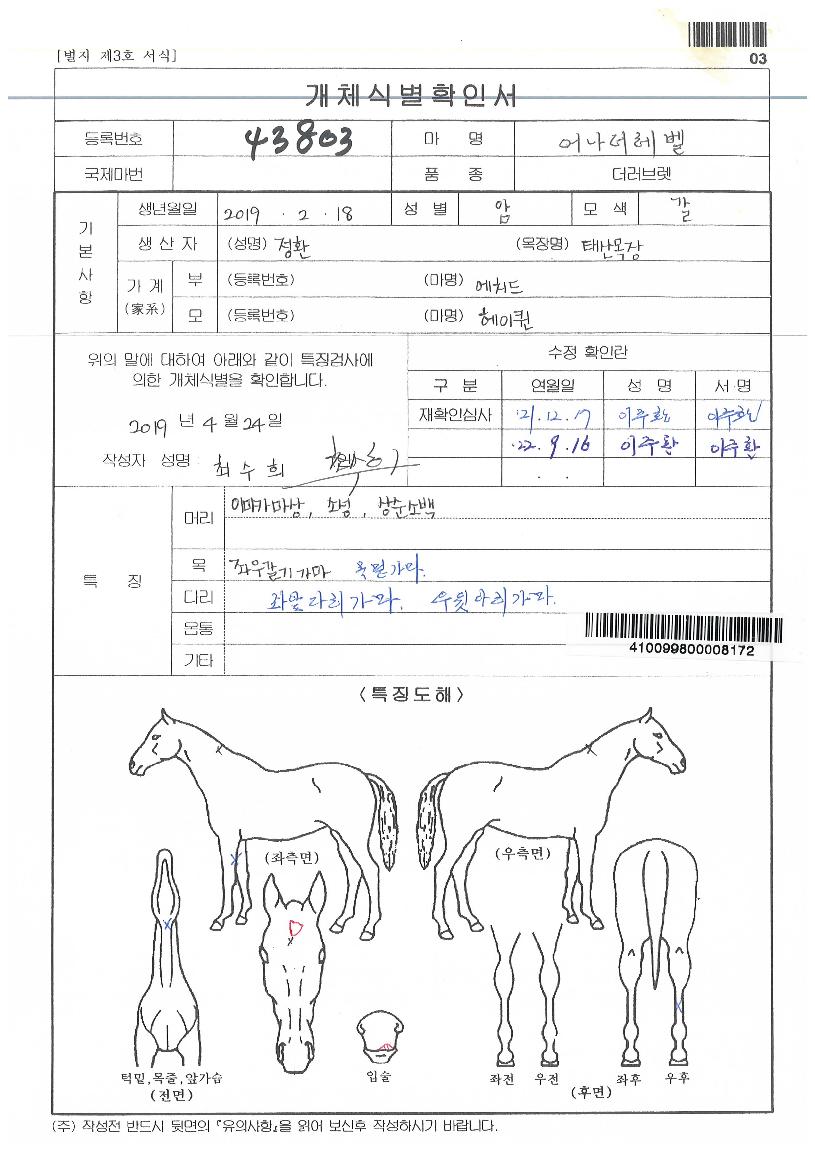 [별지 제3호 서식]
03
개체식별확인서
등록번호 43803 마 명 어나더레벨
국제마번 품 종 더러브렛
기본사항
생년월일 2019 . 2 . 18 성 별 암 모 색 갈
생 산 자 (성명) 정환 (목장명) 태산목장
가 계 (家系) 부 (등록번호) (마명) 에치드
모 (등록번호) (마명) 헤이퀸
위의 말에 대하여 아래와 같이 특징검사에
의한 개체식별을 확인합니다.
2019 년 4 월 24 일
작성자 성명 : 최수희
수정 확인란
구 분 연월일 성 명 서 명
재확인심사 '21. 12. 17 이주환 이주환
'22. 9. 16 이주환 이주환
. .
특 징
머리 이마가마상, 소성, 상순소백
목 좌우갈기가마 목밑가마.
다리 좌앞다리가마. 우뒷다리가마.
몸통
기타
410099800008172
<특징도해>
(좌측면) (우측면)
턱밑,목줄,앞가슴
(전면)
입술
좌전 우전 좌후 우후
(후면)
(주) 작성전 반드시 뒷면의 『유의사항』을 읽어 보신후 작성하시기 바랍니다.